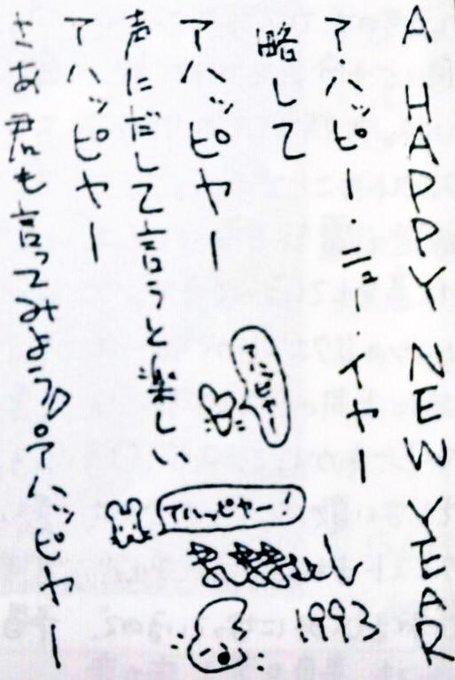 A HAPPY NEW YEAR
ア・ハッピー・ニュー・イヤー
1993
略して
アハッピヤー
声にだして言うと楽しい
アハッピヤー!
アハッピヤー
さあ君も言ってみよう アハッピヤー